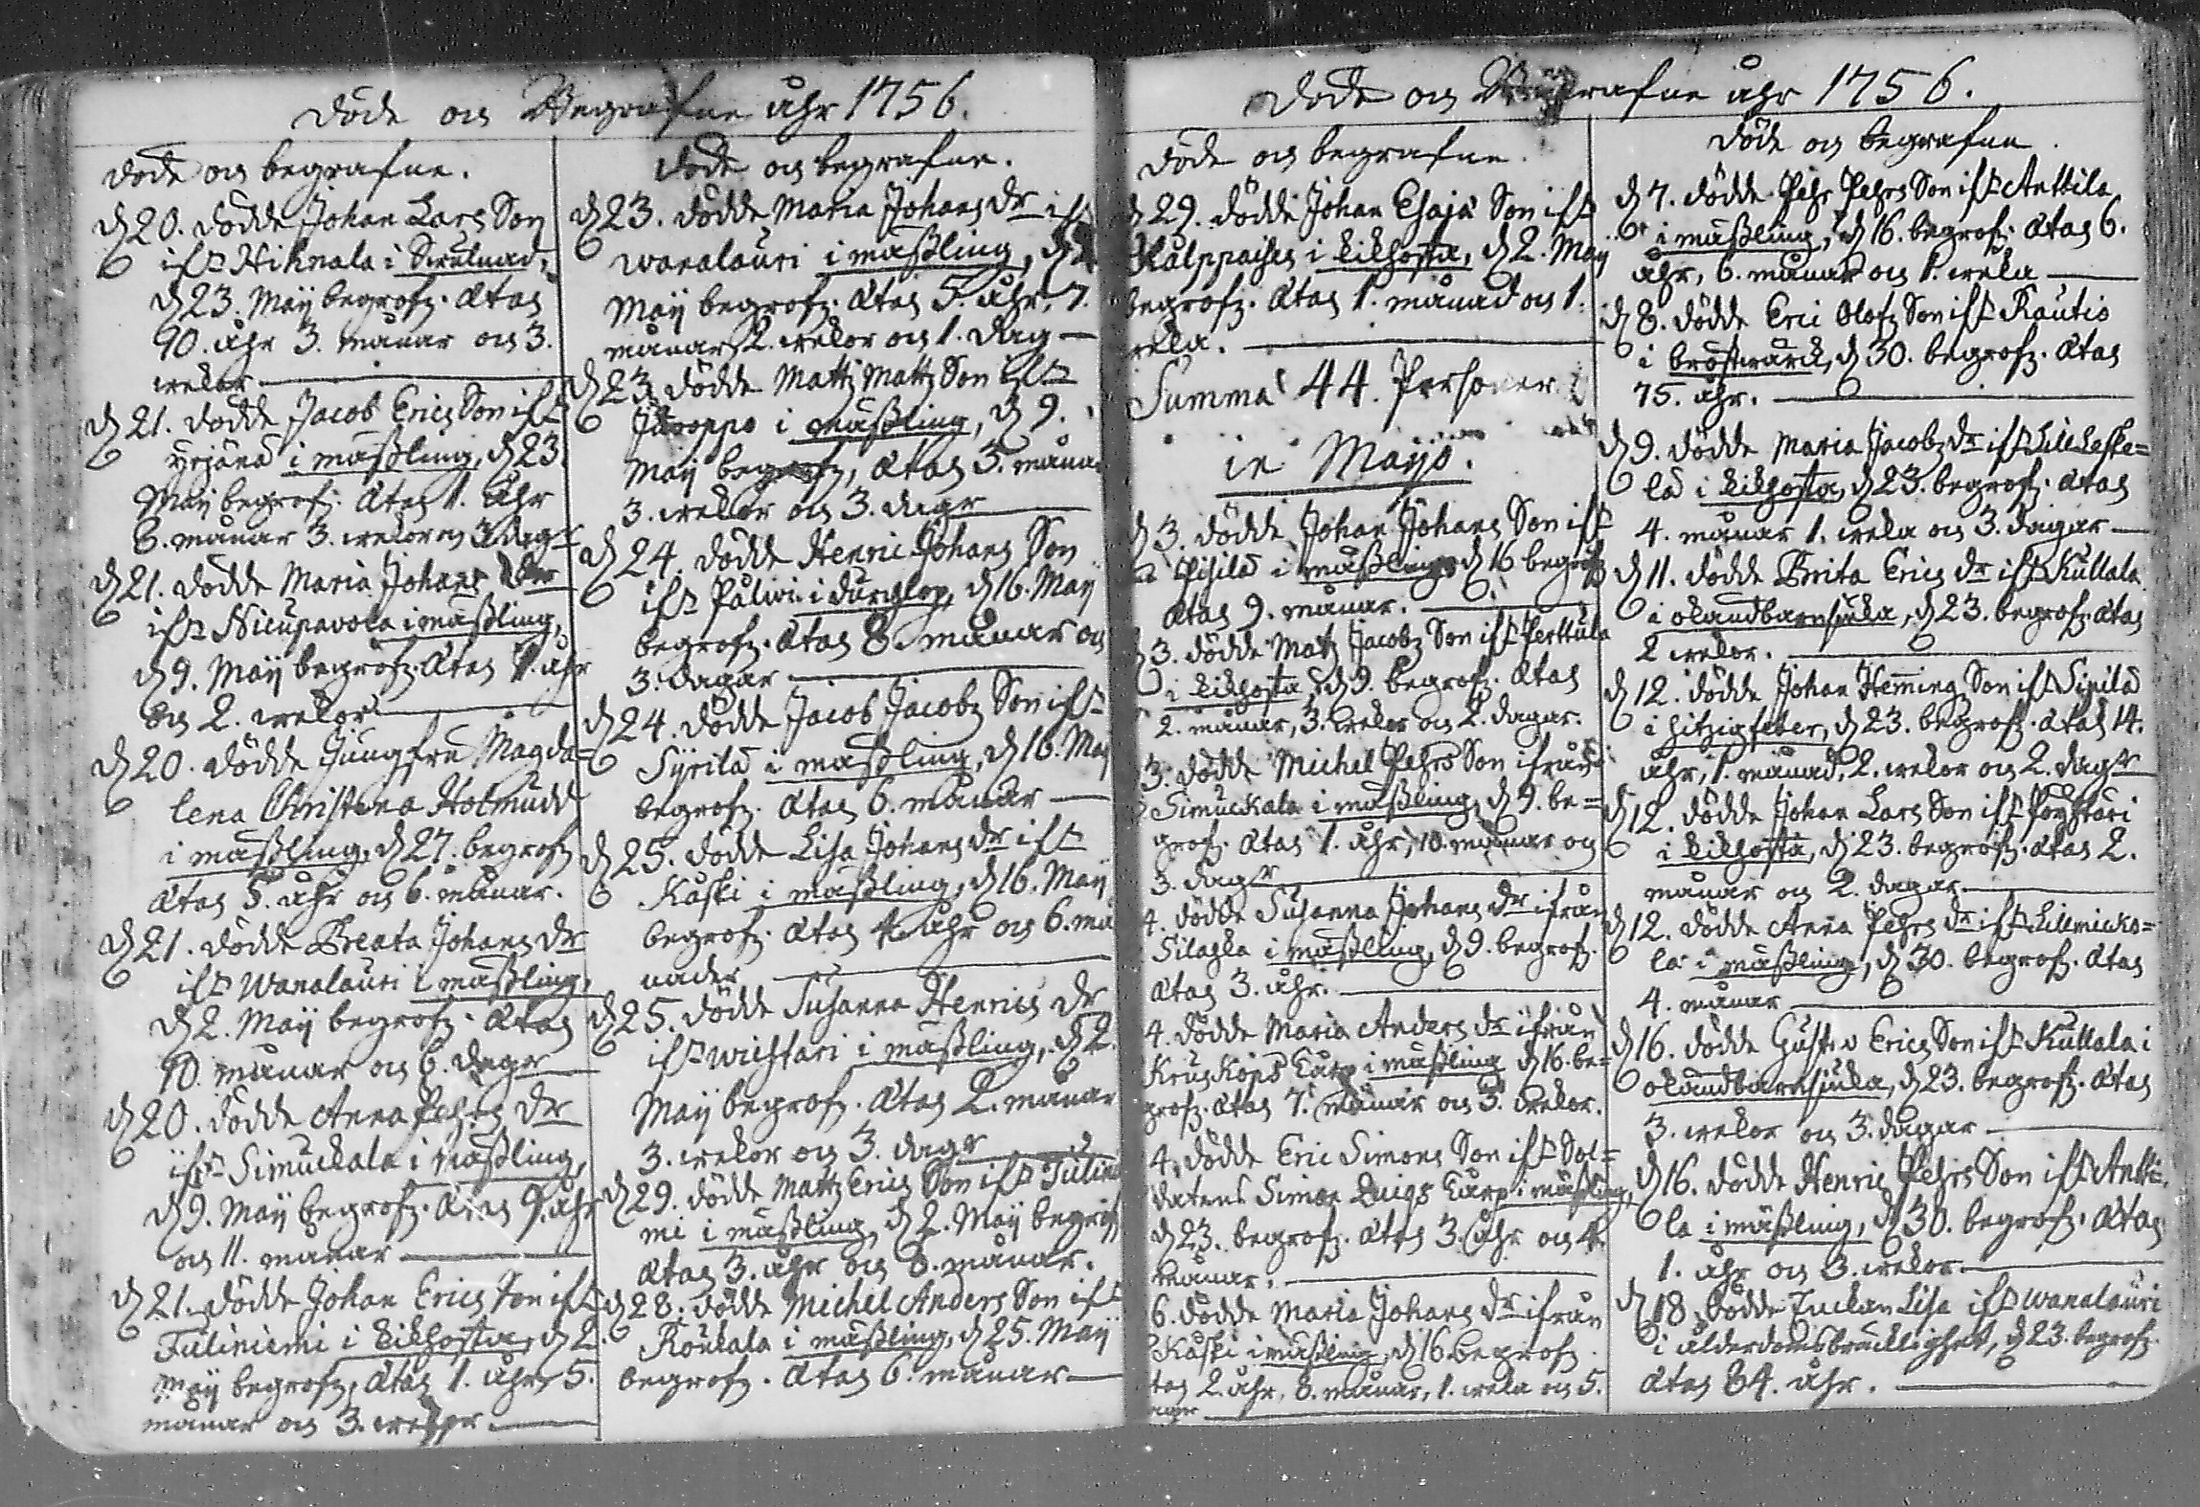 Döde och Begrafne åhr 1756.
Döde och begrafne.
d 20. dödde Johan Lars Son
ifr Hihnala i
d 23. Maÿ begrofz. Ætas
90. åhr 3. månar och 3.
wekor
d 21. dödde Jacob Erics Son ifr
Yrjänä i mäßling, d 23.
Maÿ begrofz. Ætas 1. åhr
8. månar 3. wekor och 3 dagr
d 21. dödde Maria Johans Dr
ifr Nicupavola i mäßling,
d 9. Maÿ begrofz. Ætas 1. åhr
och 2. wekor
d 20. dödde Jungfru Magda=
lena Christena Holmudd
i mäßling, d 27. begrofz
Ætas 5. åhr och 6. månar.
d 21. dödde Breata Johans Dr
ifr Wanalauri i mäßling,
d 2. Maÿ begrofz. Ætas
10. månar och 6. dagr
d 20. dödde Anna Pehrs Dr
ifr Simuckala i mäßling,
d 9. Maÿ begrofz. Ætas 9. åhr
och 11. månar
d 21. dödde Johan Erics Son ifr
Tuliniemi i kikhosta, d 2.
Maÿ begrofz, Ætas 1. åhr, 5.
månar och 3. wekor
Döde och begrafne.
d 23. dödde Maria Johans Dr ifr
Wanalauri i mäßling, d 2
Maÿ begrofz. Ætas 5. åhr, 7.
månar, 2. wekor och 1. dag
d 23. dödde Mattz Mattz Son ifr
Juroppo i mäßling, d 9.
Maÿ begrofz, Ætas 5. månar
3. wekor och 3. dagr
d 24. dödde Henric Johans Son
ifr Palwi i durchlop, d 16. Maÿ
begrofz. Ætas 8. månar och
3. dagar
d 24. dödde Jacob Jacobz Son ifr
Syrilä i mäßling, d 16. Maÿ
begrofz. Ætas 6. månar
d 25. dödde Lisa Johans Dr ifr
Kaski i mäßling, d 16. Maÿ
begrofz. Ætas 4. åhr och 6. må
nader
d 25. dödde Susanna Henrics Dr
ifr Wichtari i mäßling, d 2.
Maÿ begrofz. Ætas 2. månar
3. wekor och 3. dagr
d 29. dödde Mattz Erics Son ifr Tulinie
mi i mäßling, d 2. Maÿ begrofz
Ætas 3. åhr och 8. månar.
d 28. dödde Michel Anders Son ifr
Roukala i mäßling, d 25. Maÿ
begrofz. Ætas 6. månar
Döde och Begrafne åhr 1756.
Döde och begrafne.
d 29. dödde Johan Esaja Son ifr
Kalppaises i kikhosta, d 2. Maÿ
begrofz. Ætas 1. månad och 1.
weka.
Summa 44. Personer.
in Mayo.
d 3. dödde Johan Johans Son ifr
Pihila i mäßling, d 16 begrofz
Ætas 9. månar.
3. dödde Matz Jacobz Son ifr Perttula
i kikhosta, d 9. begrofz. Ætas
2. månar, 3. wekor och 2. dagar.
3. dödde Michel Pehrs Son ifrån
Simuckala i mäßling, d 9. be=
grofz. Ætas 1. åhr, 10. månar och
3. dagr
4. dödde Susanna Johans Dr ifrån
i mäßling, d 9. begrofz.
Ætas 3. åhr.
4. dödde Maria Anders Dr ifrån
i mäßling d 16. be=
grofz. Ætas 7. månar och 3. wekor.
4. dödde Eric Simons Son ifr Sol=
datens Simon i mäßling,
d 23. begrofz. Ætas 3. åhr och 4.
månar.
6. dödde Maria Johans Dr ifrån
Kaski i mäßling, d 16. begrofz.
Ætas 2. åhr, 8. månar, 1. weka och 5.
dagar
Döde och begrafne.
d 7. dödde Pehr Pehrs Son ifr Anttila
i mäßling, d 16. begrofz. Ætas 6.
åhr, 6. månar och 1. weka
d 8. dödde Eric Olofz Son ifr Rautio
i bröstwärck, d 30. begrofz. Ætas
75. åhr.
d 9. dödde Maria Jacobz Dr ifr Lilleleske=
lä i kikhosta, d 23. begrofz. Ætas
4. månar 1. weka och 3. dagar
d 11. dödde Brita Erics Dr ifr Kullala
i okändbarnsjuka, d 23. begrofz. Ætas
2 wekor.
d 12. dödde Johan Heming Son ifr Sipilä
i hitzigfeber, d 23. begrofz. Ætas 14.
åhr, 1. månad, 2. wekor och 2. dagr
d 12. dödde Johan Lars Son ifr Poystari
i kikhosta, d 23. begrofz. Ætas 2.
månar och 2. dagar.
d 12. dödde Anna Pehrs Dr ifr Lillnicko=
la i mäßling, d 30. begrofz. Ætas
4. månar
d 16. dödde Gustav Erics Son ifr Kullala i
okändbarnsjuka, d 23. begrofz. Ætas
3. wekor och 3. dagar
d 16. dödde Henric Pehrs Son ifr Antti=
la i mäßling, d 30. begrofz. Ætas
1. åhr och 3. wekor.
d 18. dödde Enckan Lisa ifr Wanalauri
i ålderdomsbräcklighet, d 23. begrofz.
Ætas 84. åhr.